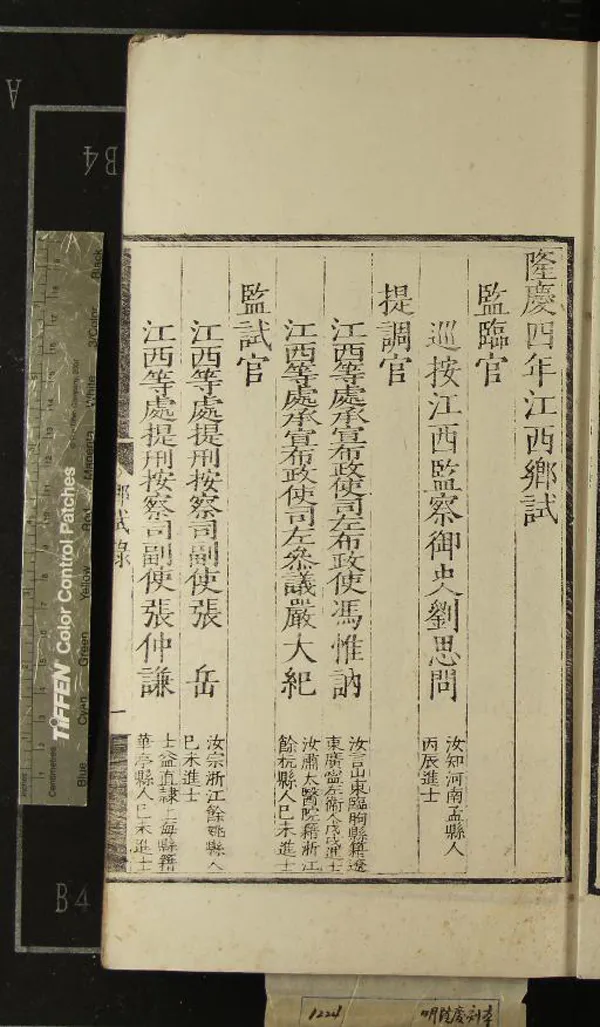 隆慶四年江西鄉試
監臨官
巡按江西監察御史劉思問
汝知河南孟縣人
丙辰進士
提調官
江西等處承宣布政使司左布政使馮惟訥
汝言山東臨朐縣籍遼
東廣寧左衛人戊戌進士
江西等處承宣布政使司左參議嚴大紀
汝肅太醫院籍浙江
餘杭縣人己未進士
監試官
江西等處提刑按察司副使張岳
汝宗浙江餘姚縣人
己未進士
江西等處提刑按察司副使張仲謙
士益直隸上海縣籍
華亭縣人己未進士
鄉試錄
一
A
B4
B4
TIFFEN Color Control Patches
Centimetres
Inches
Blue
Cyan
Green
Yellow
Red
Magenta
White
3/Color
Black
1224
明隆慶刻本